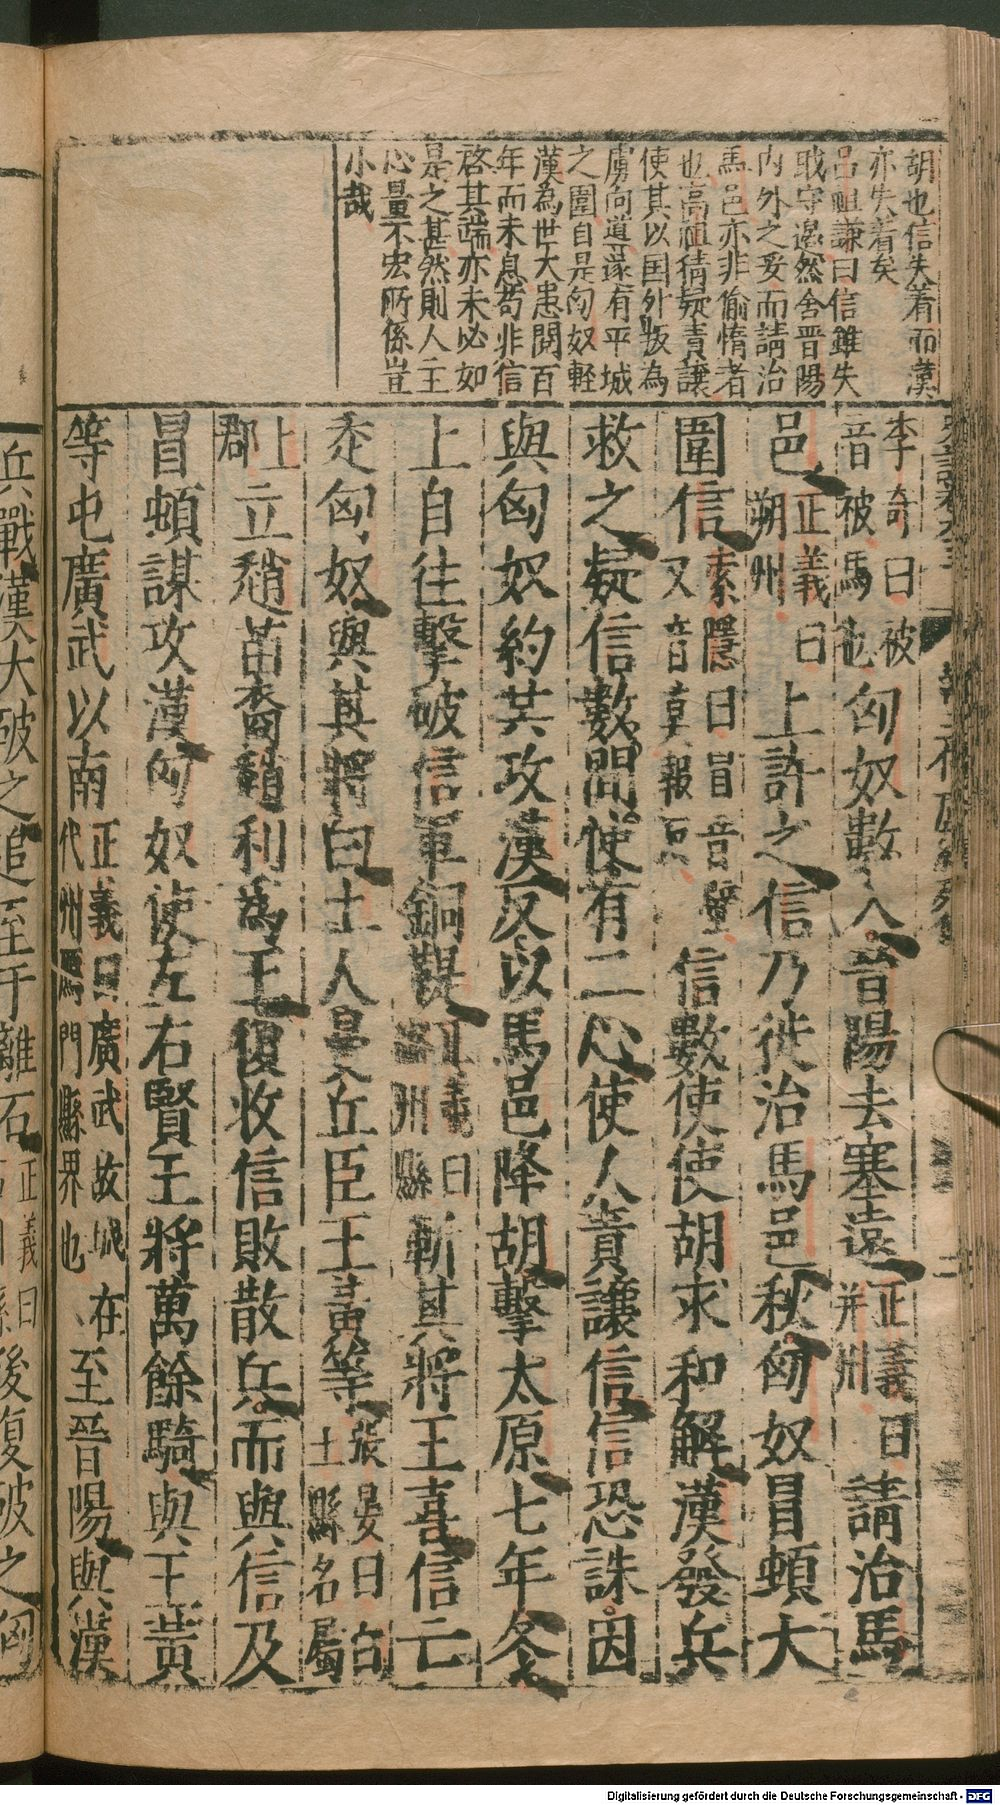 胡也信失着而漢
亦失着矣
呂祖謙曰信雖失
戰守邊然舍晉陽
內外之安而請治
馬邑亦非偷惰者
也高祖猜疑責讓
使其以国外叛為
虜向道遂有平城
之圍自是匈奴輕
漢為世大患閱百
年而未息苟非信
啓其端亦未必如
是之甚然則人主
心量不宏所係豈
小哉
李奇曰被
音被馬也
匈奴數入晉陽去塞遠
正義曰
并州
請治馬
邑
正義曰
朔州
上許之信乃徙治馬邑秋匈奴冒頓大
圍信
索隱曰冒音墨
又音莫報反
信數使使胡求和解漢發兵
救之疑信數間使有二心使人責讓信信恐誅因
與匈奴約共攻漢反以馬邑降胡擊太原七年冬
上自往擊破信軍銅鞮
正義曰
州縣
斬其將王喜信亡
走匈奴與其將白土人曼丘臣王黃等
張晏曰白
土縣名屬
上
郡
立趙苗裔趙利為王復收信敗散兵而與信及
冒頓謀攻漢匈奴使左右賢王將萬餘騎與王黃
等屯廣武以南
正義曰廣武故城在
代州鴈門縣界也
至晉陽與漢
兵戰漢大破之追至于離石
正義曰
後復破之匈
Digitalisierung gefördert durch die Deutsche Forschungsgemeinschaft - DFG